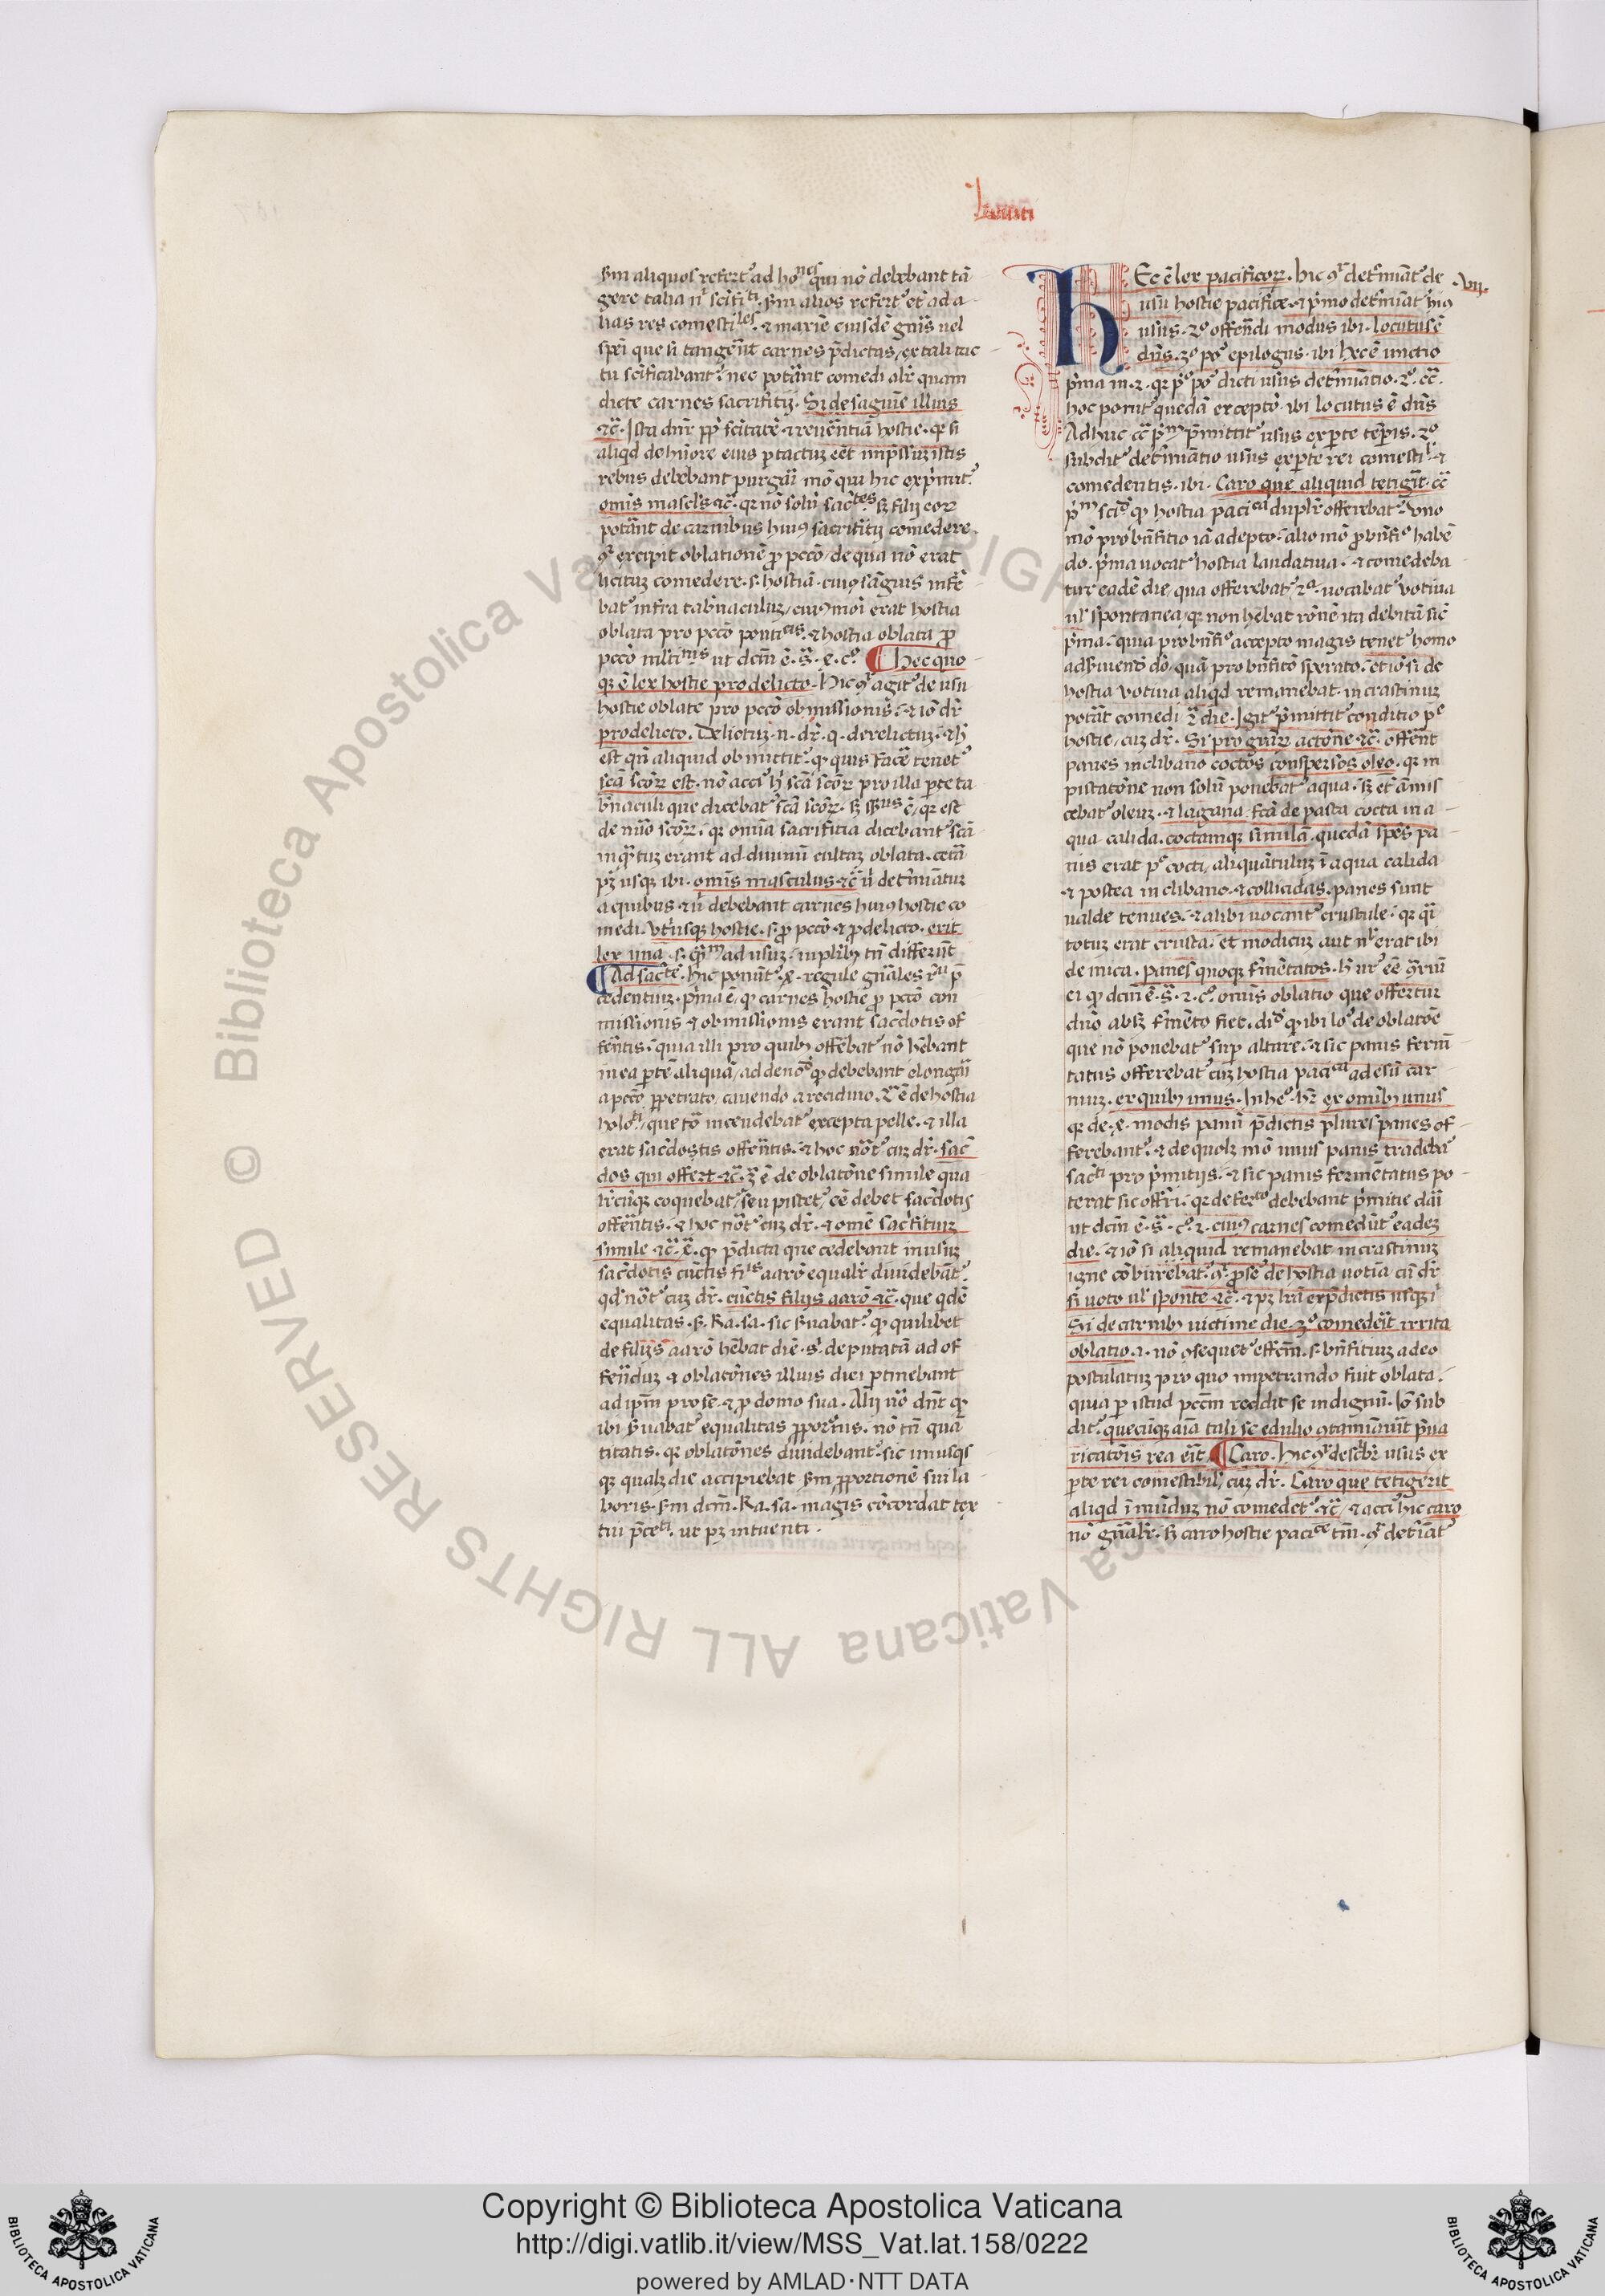 Leuiti
s̄m aliquos refert᷒ ad hoı̄es qui nō debebant tā
gere talia nͥ scı̄fiͭͥ. s̄m alios refert᷒ et̄ ad a
lias res comestiles. ⁊ maxīe eiusdē gn̄is uel
spēi que si tanger̄ut carnes p̄dictas, ex tali tac
tu scı̄ficabant᷒. nec poterāt comedi alr̄ quam
dicte carnes sacrifitij. Si de saguīe illius
⁊c̄. Ista dn̄r ꝓp̄ scı̄tatē ⁊ reuerētiā hostie. ꝙ si
rebus debebant purgari mō qui hic exp̄mit᷒.
omīs mascl̄s ⁊c̄. qꝛ nō solū sac̄tes. sꝫ filij eoꝝ
poterāt de carnibus huiꝰ sacrifitij comedere.
ꝯͬ excipit oblationē ꝓ pcc̄o, de qua nō erat
licituꝫ comedere. s. hostiā. cuiꝰ sāguis infe
bat᷒ infra tab̄naculuꝫ, cuiꝰmōi erat hostia
oblata pro pcc̄o pontiͨⁱˢ. ⁊ hostia oblata ꝓ
pcc̄o ml̄tiⁿⁱˢ ut dcm̄ ē. s̄. x. c°. ¶ Hec quo
qꝫ ē lex hostie pro delicto. Hic ꝯͬ agit᷒ de usu
hostie oblate pro pcc̄o obmissionis. ⁊ iō dr̄
pro delicto. Delictuꝫ. n. dr̄. q. derelictuꝫ. ⁊ h̄
est qn̄ aliquid obmittit᷒. qͦ quis fac̄e tenet᷒
de nūo scōꝝ. qꝛ omīa sacrifitia dicebant᷒ scā
inqͣtuꝫ erant ad diuinū cultuꝫ oblata. cetā
pꝫ usqꝫ ibi. omīs masculus ⁊c̄. ū det̄mināt᷒
a quibus ⁊ ū debebant carnes huiꝰ hostie co
medi. Vt̄usqꝫ hostie. s. ꝓ pcc̄o ⁊ ꝓ delicto. erit
lex una. s. qͣn̄ᵐ ad usuꝫ. in pl̄ribꝫ tn̄ differūt
¶ Ad sac̄tē. Hic ponūt᷒. x. regule gn̄ales r̄u p̄
cedentiuꝫ. p̄ma ē, ꝙ carnes hostie ꝓ pcc̄o com
missionis ⁊ obmissionis erant sac̄dotis of
fentis. quia illi pro quibꝫ offēbat᷒ nō hēbant
in ea ꝑtē aliquā, ad denōᵈ ꝙ debebant elongari
a pcc̄o ꝑpetrato, cauendo a recidiuo. 2ᵃ ē de hostia
holoͭⁱ, que tō incendebat᷒ excepta pelle. ⁊ illa
erat sac̄dotis offentis. ⁊ hoc nōt᷒ cuꝫ dr̄. sac̄
dos qui offert ⁊c̄. 3ᵃ ē de oblatōne simile quā
licūqꝫ coquebat᷒, seu pistet᷒, cē debet sac̄dotis
offentis. ⁊ hoc nōt᷒ cuꝫ dr̄. ⁊ omē sacrifituꝫ
simile ⁊c̄. 4ᵃ. ꝙ p̄dicta que cedebant in usuꝫ
sac̄dotis cūctis fiˡⁱˢ aarō equalr̄ diuidebant᷒.
qd̄ nōt᷒ cuꝫ dr̄. cūctis filijs aarō ⁊c̄. que qͥdē
equalitas. s̄. Ra. sa. sic s̄uabat᷒. ꝙ quilibet
de filijs aarō hēbat diē. s̄. deputatā ad of
fen̄duꝫ ⁊ oblatōnes illius diei ꝑtinebant
ad ip̄m pro se. ⁊ ꝓ domo sua. Alij u̅o dn̄t ꝙ
ibi s̄uabat᷒ equalitas ꝓporᵗⁿⁱˢ. nō tn̄ quā
titatis. qꝛ oblatōnes diuidebant᷒. sic unusqͥs
qꝫ qualꝫ die accipiebat s̄m ꝓportionē sui la
boris. s̄m dcm̄. Ra. sa. magis cōcordat tex
tui p̄ceᵗⁱ. ut pꝫ intuenti.
HEc ē lex pacificoꝝ. Hic ꝯͬ det̄mīat᷒ de
usu hostie pacifice. ⁊ p̄mo det̄mīat᷒ ip̄iꝰ
usus. 2° offen̄di modus ibi. locutus ē
dn̄s. 3° po᷒ epilogus. ibi hec ē unctio
p̄ma in. 2. qꝛ p° po᷒ dicti usus det̄mīatio. 2°. cc̄.
hoc ponit᷒ quedā exceptō. ibi locutus ē dn̄s
Adhuc cc̄ p̄ᵐ p̄mittit᷒ usus ex ꝑte tp̄eris. 2°
subdit᷒ det̄mīatio usus ex ꝑte rei comestiˡ. ⁊
comedentis. ibi. Caro que aliquid tetigit. cc̄
p̄ᵐ sciᵈ ꝙ hostia paciᶜᵃ duplr̄ offerebat᷒. uno
mō pro bn̄fitio iā adepto. alio mō ꝓ bn̄fi° habē
do. p̄ma uocat᷒ hostia laudatiua. ⁊ comedeba
tur eadē die, qua offerebat᷒. 2ᵃ. uocabat᷒ uotiua
ul̄ spontanea, qꝛ non hēbat rōnē ita debitā sic̄
p̄ma. quia pro bn̄fi° accepto magis tenet᷒ homo
ad s̄uiend̄ dō, quā pro bn̄fitō sperato. et iō si de
hostia uotiua aliqd̄ remanebat. in crastinuꝫ
potāt comedi 2ᵃ die. Igit᷒ p̄mittit᷒ conditio p̄ᵉ
hostie, cuꝫ dr̄. Si pro gr̄aꝝ actōne ⁊c̄. offerēt
panes in clibano coctos conspersos oleo. qꝛ in
pistatōne non solū ponebat᷒ aqua. sꝫ et̄ āmis
cebat᷒ oleuꝫ. ⁊ lagana. fcā de pasta cocta in a
qua calida. coctamqꝫ similā. quedā sp̄es pa
nis erat p° cocti, aliquātuluꝫ ī aqua calida
⁊ postea in clibano. ⁊ collicidas. panes sunt
ualde tenues. ⁊ alibi uocant᷒ crustule. qꝛ qͣi
totuꝫ erat crusta. et modicuꝫ aut nͥl erat ibi
de mica. panes quoqꝫ fermētatos. h̄ ur̄ eē ꝯͬriū
ei ꝙ dcm̄ ē. s̄. 2. c°. omīs oblatio que offertur
dn̄o absqꝫ f̄mēto fiet. diᵈ ꝙ ibi lo᷒ de oblatōe
que nō ponebat᷒ suꝑ altare. ⁊ sic panis ferm̄
tatus offerebat᷒ cuꝫ hostia paciᶜᵃ ad esū car
niuꝫ. ex quibꝫ unus. In heº. hr̄. ex omibꝫ unus
qꝛ de. x. modis panū p̄dictis plures panes of
ferebant᷒. ⁊ de quolꝫ mō unus panis tradebat᷒
sac̄ᵗⁱ pro p̄mitijs. ⁊ sic panis fermētatus po
terat sic offerri. qꝛ de ferᵗᵒ debebant p̄mitie dari
ut dcm̄ ē. s̄. c°. 2. cuiꝰ carnes comedēt᷒ eadeꝫ
die. ⁊ iō si aliquid remanebat in crastinuꝫ
igne cōbūrebat᷒. ꝯͬ ꝓse᷒ de hostia uotiua cū dr̄
si uoto ul̄ sponte ⁊c̄. ⁊ pꝫ lr̄a ex p̄dictis usqꝫ ī
Si de carnibꝫ uictime die. 3°. comederit irrita
oblatio. i. nō ꝯsequet᷒ effcm̄. s. bn̄fitiuꝫ a deo
postulatuꝫ pro quo impetrando fuit oblata.
quia ꝑ istud pccm̄ reddit se indignū. Iō sub
dit᷒. quecūqꝫ aīa tali se edulio ꝯtamīauit p̄ua
ricatōis rea erit. ¶ Caro. Hic ꝯͬ describit᷒ usus ex
ꝑte rei comestibil̄, cuꝫ dr̄. Caro que tetigerit
aliqd̄ īmūduꝫ nō comedet᷒ ⁊c̄, ⁊ acci᷒ hic caro
nō gn̄alr̄. sꝫ caro hostie paciᶜᵉ tm̄. ꝯͬ det̄iāt᷒
.vii.
© Biblioteca Apostolica Vaticana ALL RIGHTS RESERVED
Copyright © Biblioteca Apostolica Vaticana
http://digi.vatlib.it/view/MSS_Vat.lat.158/0222
powered by AMLAD·NTT DATA
BIBLIOTECA APOSTOLICA VATICANA
BIBLIOTECA APOSTOLICA VATICANA